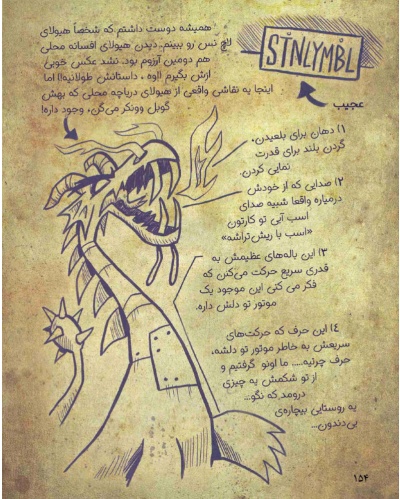 همیشه دوست داشتم که شخصاً هیولای
لاچ نس رو ببینم.. دیدن هیولای افسانه محلی
هم دومین آرزوم بود. نشد عکس خوبی
ازش بگیرم (اوه ، داستانش طولانیه!) اما
اینجا یه نقاشی واقعی از هیولای دریاچه محلی که بهش
گوبل وونکر می‌گن، وجود داره!
STNLYMBL
عجیب
۱) دهان برای بلعیدن.
گردن بلند برای قدرت
نمایی کردن.
۲) صدایی که از خودش
درمیاره واقعا شبیه صدای
اسب آبی تو کارتون
«اسب با ریش‌تراشه»
۳) این باله‌های عظیمش به
قدری سریع حرکت می‌کنن که
فکر می کنی این موجود یک
موتور تو دلش داره.
٤) این حرف که حرکت‌های
سریعش به خاطر موتور تو دلشه،
حرف چرتیه..... ما اونو گرفتیم و
از تو شکمش یه چیزی
درومد که نگو...
یه روستایی بیچاره‌ی
بی‌دندون...
۱۵۴